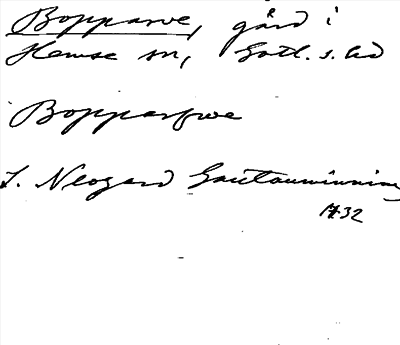 Bopparve, gård i
Hemse sn, Gotl. s. hd
Bopparfwe
J. Neogard Gautauminning
1732